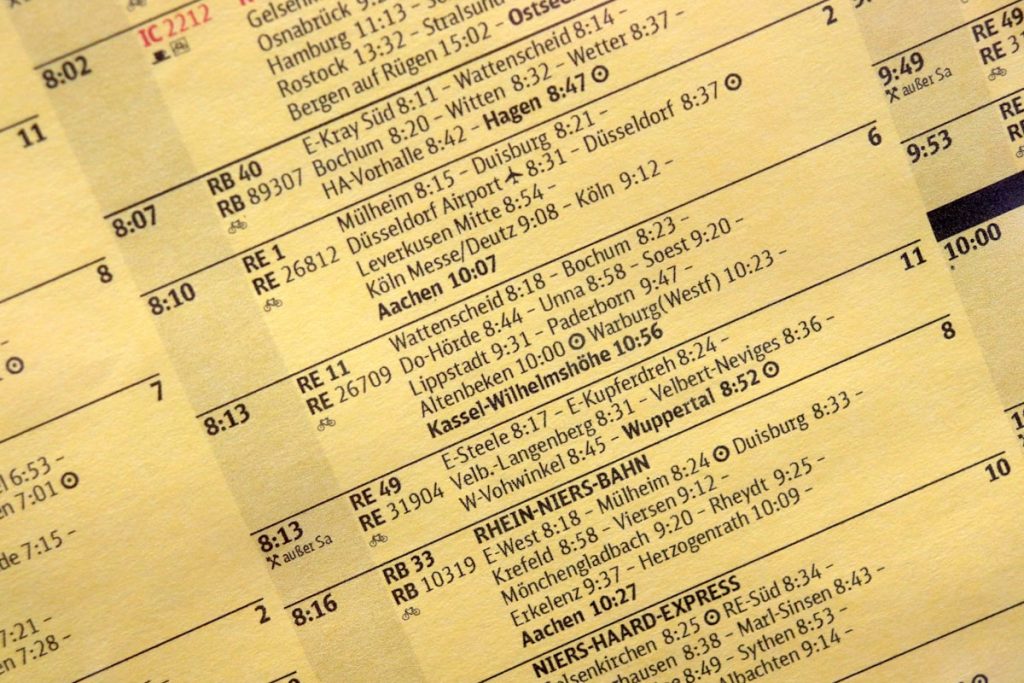 11
8
l 6:53 –
en 7:01
7
de 7:15 –
2
7:21 –
en 7:28 –
8:02
IC 2212
Gelsenk
Osnabrück 9:2
Hamburg 11:13 – Sch
Rostock 13:32 – Stralsund
Bergen auf Rügen 15:02 – Ostsee
8:07
RB 40
RB 89307
E-Kray Süd 8:11 – Wattenscheid 8:14 –
Bochum 8:20 – Witten 8:32 – Wetter 8:37 –
HA-Vorhalle 8:42 – Hagen 8:47
8:10
RE 1
RE 26812
Mülheim 8:15 – Duisburg 8:21 –
2
Düsseldorf Airport 8:31 – Düsseldorf 8:37
Leverkusen Mitte 8:54 –
Köln Messe/Deutz 9:08 – Köln 9:12 –
Aachen 10:07
8:13
RE 11
RE 26709
Wattenscheid 8:18 – Bochum 8:23 –
6
Do-Hörde 8:44 – Unna 8:58 – Soest 9:20 –
Lippstadt 9:31 – Paderborn 9:47 –
Altenbeken 10:00 Warburg(Westf) 10:23 –
Kassel-Wilhelmshöhe 10:56
8:13
außer Sa
RE 49
RE 31904
E-Steele 8:17 – E-Kupferdreh 8:24 –
11
Velb.-Langenberg 8:31 – Velbert-Neviges 8:36 –
W-Vohwinkel 8:45 – Wuppertal 8:52
8:16
RB 33
RB 10319
RHEIN-NIERS-BAHN
8
E-West 8:18 – Mülheim 8:24 Duisburg 8:33 –
Krefeld 8:58 – Viersen 9:12 –
Mönchengladbach 9:20 – Rheydt 9:25 –
Erkelenz 9:37 – Herzogenrath 10:09 –
Aachen 10:27
NIERS-HAARD-EXPRESS
10
elsenkirchen 8:25 RE-Süd 8:34 –
ghausen 8:38 – Marl-Sinsen 8:43 –
e 8:49 – Sythen 8:53 –
Albachten 9:14 –
9:49
außer Sa
RE 49
RE 31
9:53
RE
RE
10:00